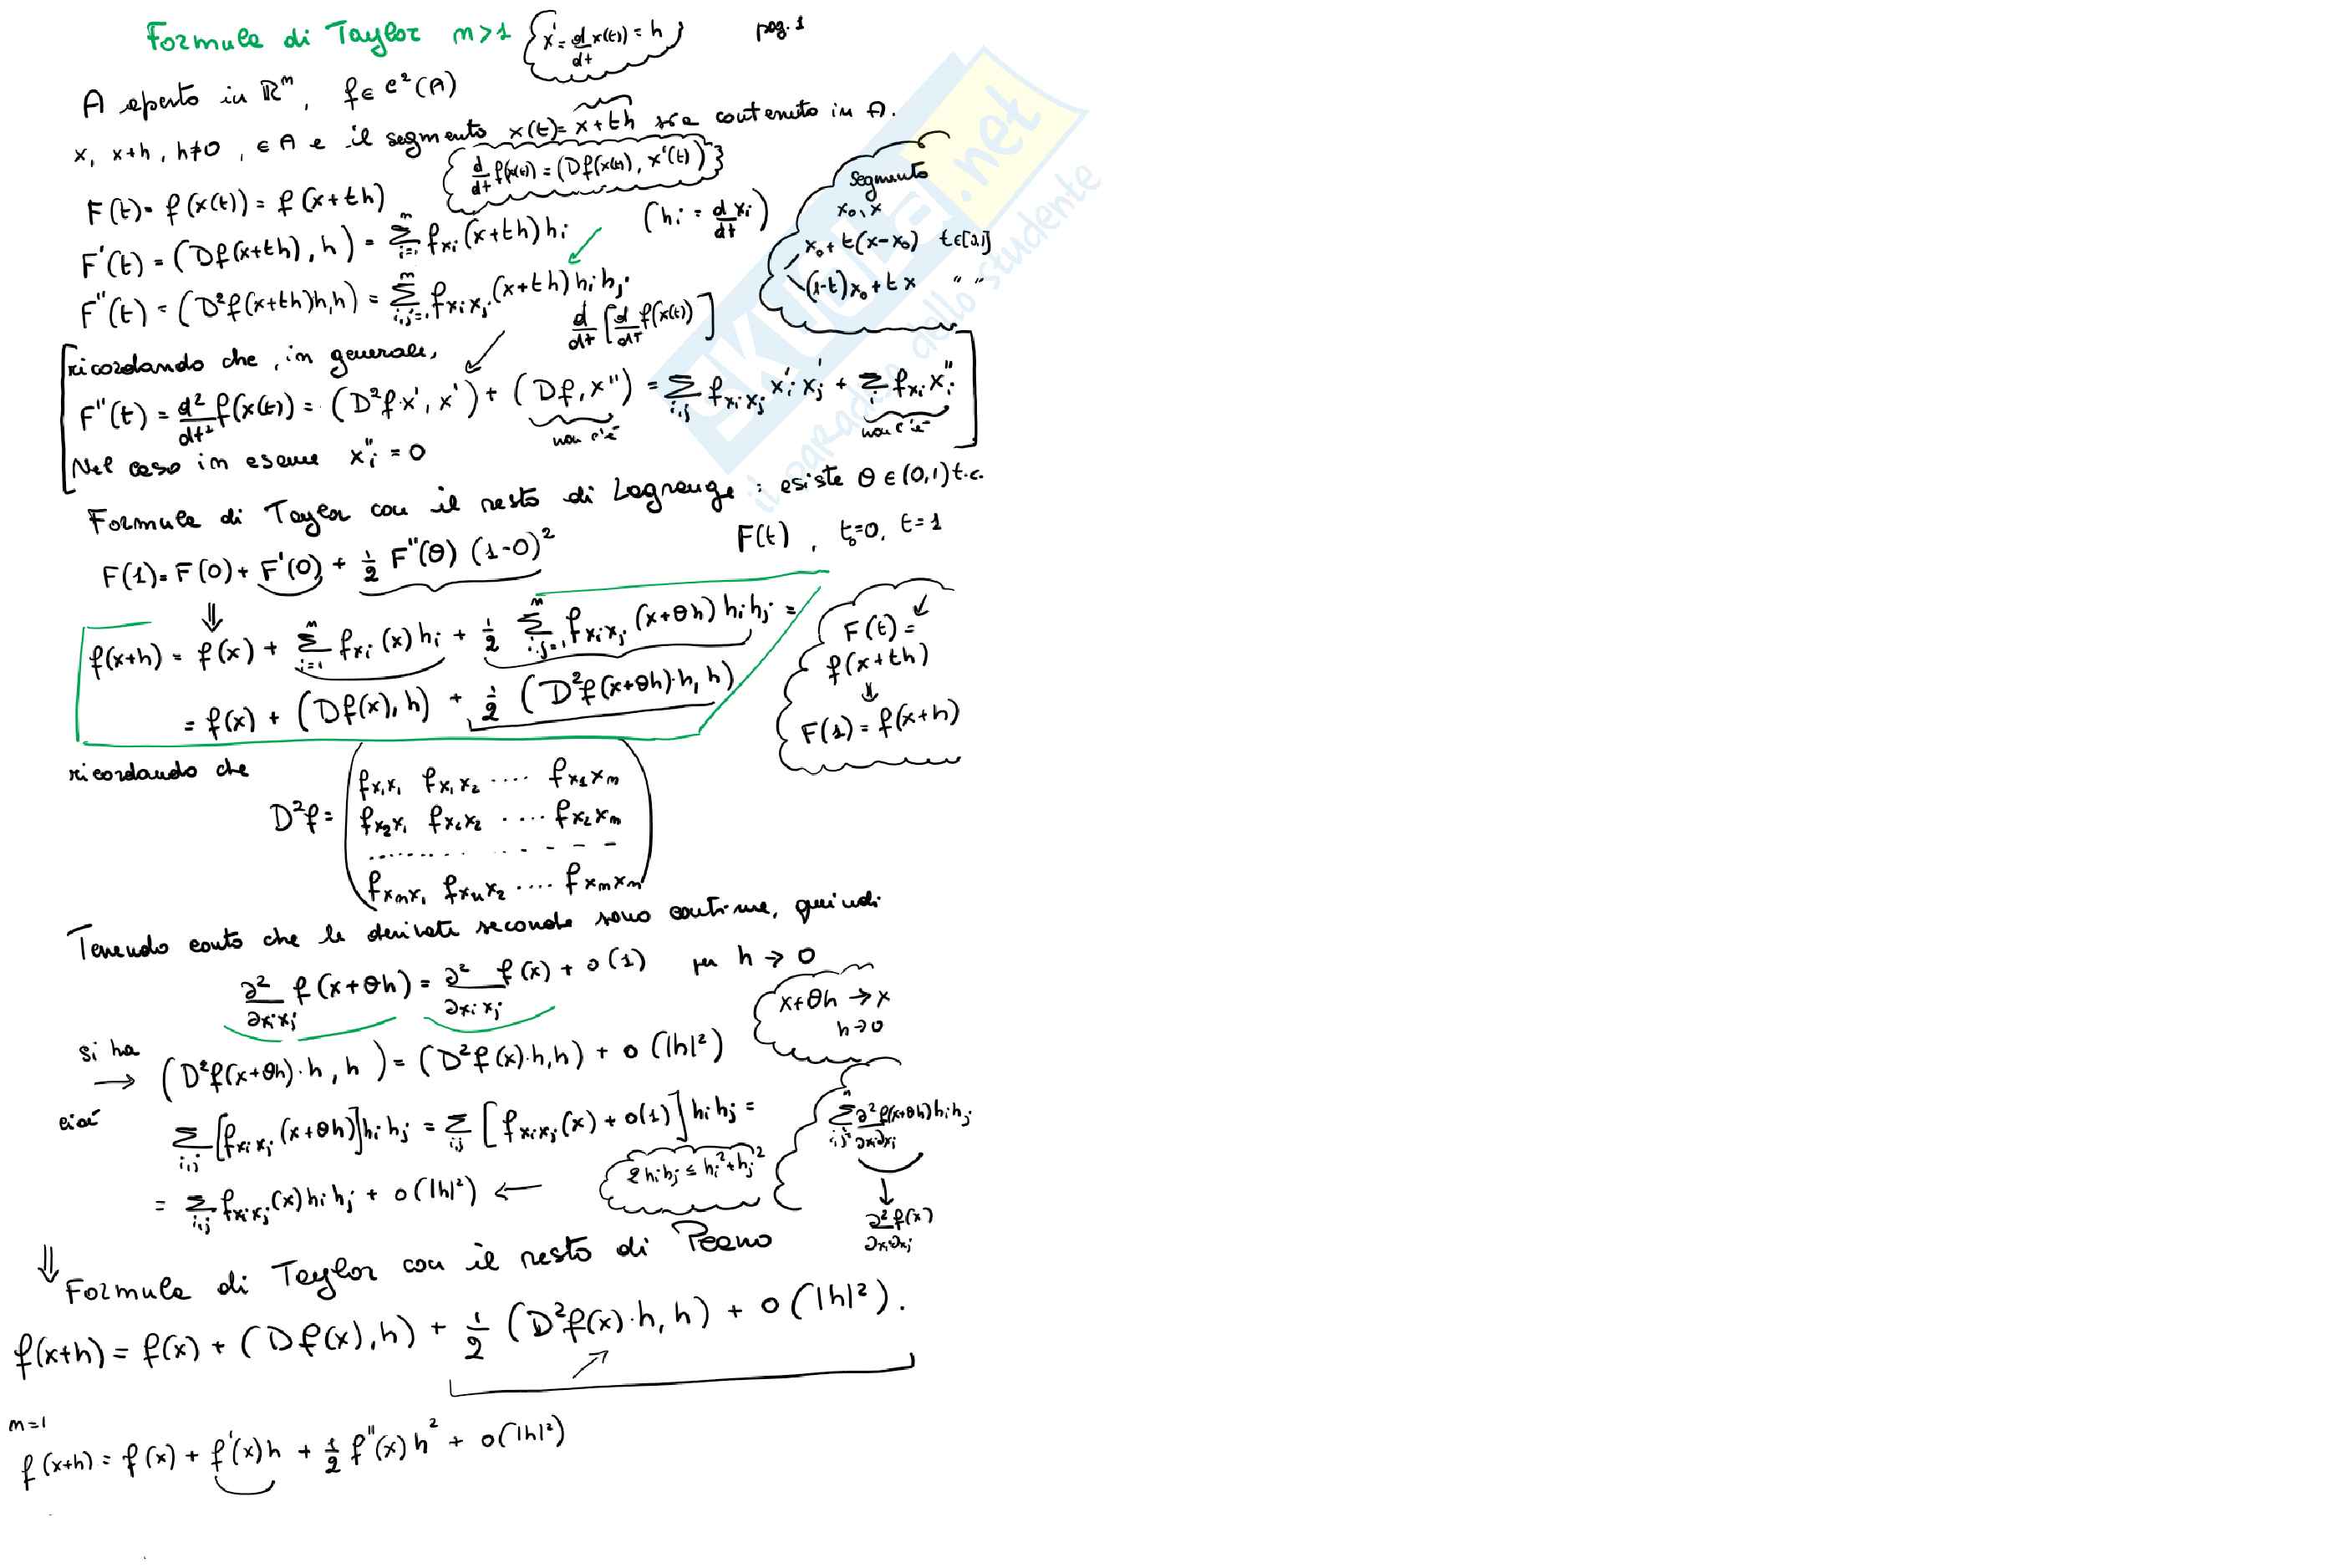 Formula di Taylor n>1 x' = d/dt x(t) = h pag. 1
A aperto in ℝⁿ, f ∈ C²(A)
x, x+h, h≠0, ∈ A e il segmento x(t) = x+th sia contenuto in A.
d/dt f(x(t)) = (Df(x(t)), x'(t))
F(t) = f(x(t)) = f(x+th)
F'(t) = (Df(x+th), h) = Σ_{i=1}^n f_{xi}(x+th) hi (hi = d/dt xi)
F''(t) = (D²f(x+th)h,h) = Σ_{i,j=1}^n f_{xixj}(x+th) hi hj
d/dt [d/dt f(x(t))]
segmento
x₀, x
x₀ + t(x-x₀) t∈[0,1]
(1-t)x₀ + tx " "
ricordando che, in generale,
F''(t) = d²/dt² f(x(t)) = (D²f·x', x') + (Df, x'') = Σ_{i,j} f_{xixj} x'i x'j + Σ_i f_{xi} x''i
non c'è non c'è
Nel caso in esame x''i = 0
Formula di Taylor con il resto di Lagrange: esiste θ ∈ (0,1) t.c.
F(t), t₀=0, t=1
F(1) = F(0) + F'(0) + 1/2 F''(θ) (1-0)²
⇓
f(x+h) = f(x) + Σ_{i=1}^n f_{xi}(x) hi + 1/2 Σ_{i,j=1}^n f_{xixj}(x+θh) hi hj =
= f(x) + (Df(x), h) + 1/2 (D²f(x+θh)·h, h)
F(t) =
f(x+th)
⇓
F(1) = f(x+h)
ricordando che
D²f =
f_{x1x1} f_{x1x2} .... f_{x1xn}
f_{x2x1} f_{x2x2} .... f_{x2xn}
.................
f_{xnx1} f_{xnx2} .... f_{xnxn}
Tenendo conto che le derivate seconde sono continue, quindi
∂²/∂xixj f(x+θh) = ∂²/∂xixj f(x) + o(1) per h → 0
x+θh → x
h→0
si ha
→ (D²f(x+θh)·h, h) = (D²f(x)·h,h) + o(|h|²)
cioè
Σ_{i,j} [f_{xixj}(x+θh)] hi hj = Σ_{i,j} [f_{xixj}(x) + o(1)] hi hj =
2hihj ≤ hi²+hj²
= Σ_{i,j} f_{xixj}(x) hi hj + o(|h|²) ←
Σ_{i,j}^n ∂²f(x+θh)/∂xi∂xj hi hj
↓
∂²f(x)/∂xi∂xj
⇓ Formula di Taylor con il resto di Peano
f(x+h) = f(x) + (Df(x), h) + 1/2 (D²f(x)·h, h) + o(|h|²).
n=1
f(x+h) = f(x) + f'(x)h + 1/2 f''(x)h² + o(|h|²)
SKUOLA.net
il paradiso dello studente